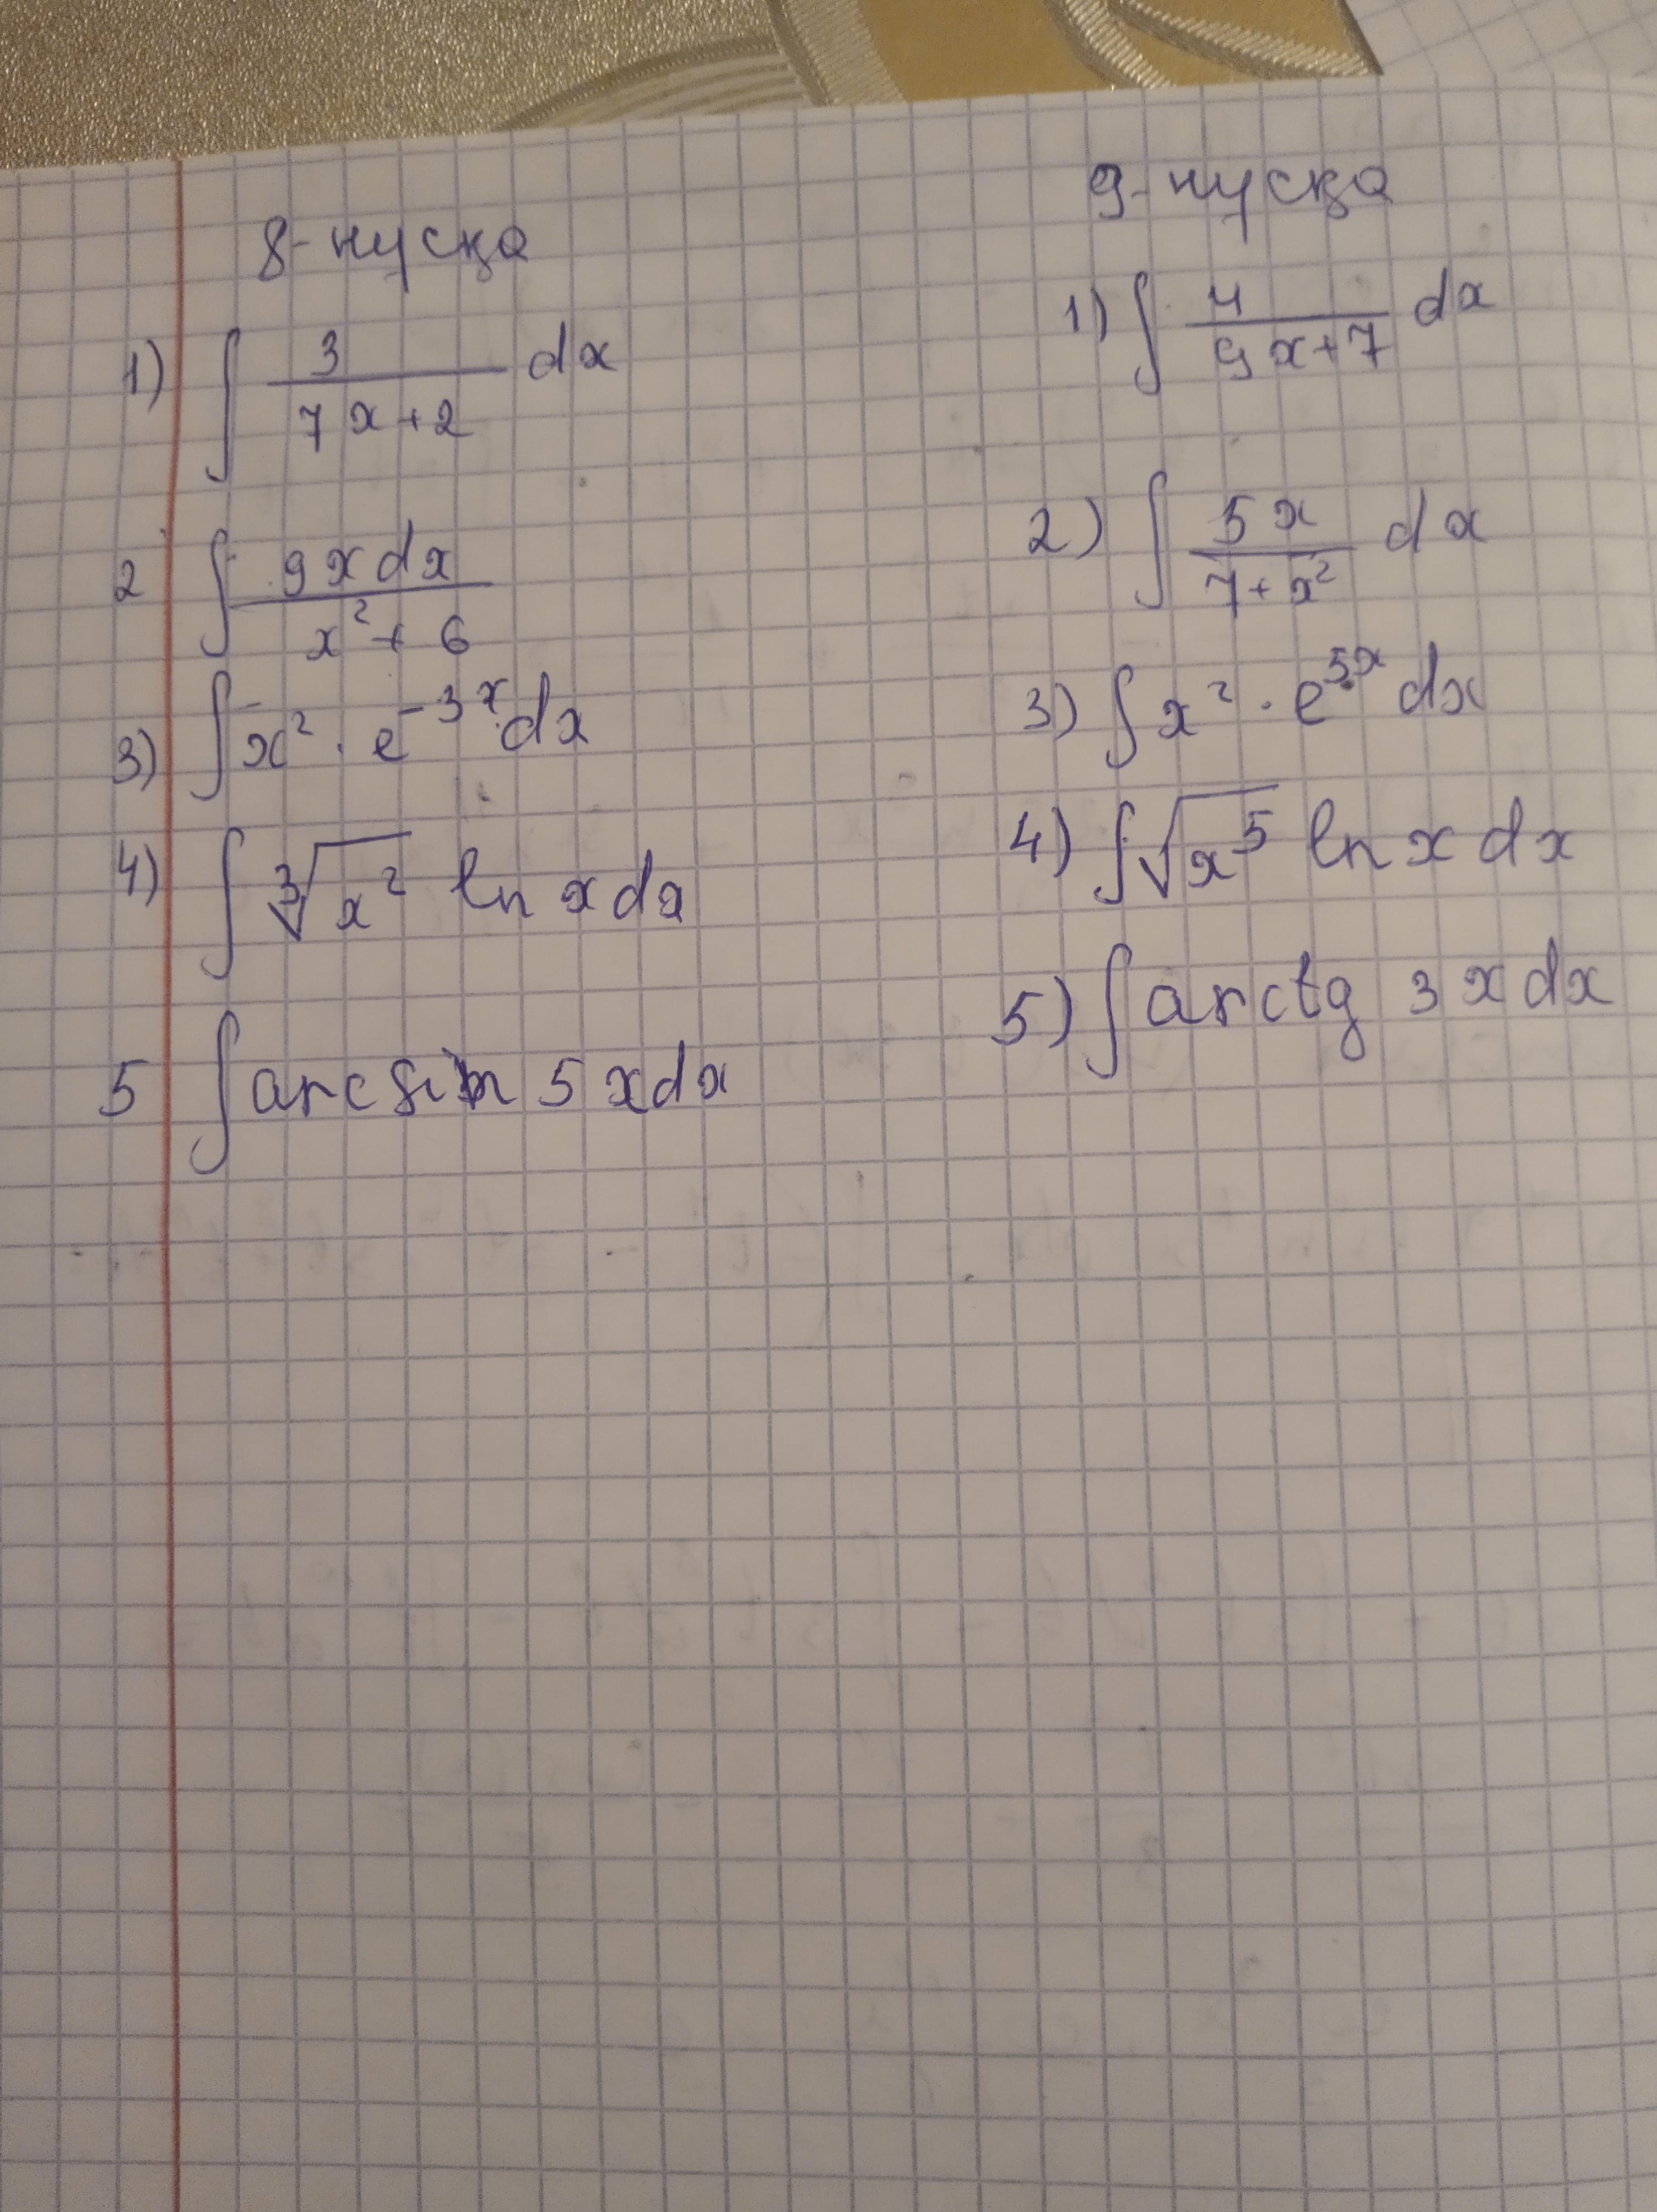 8-нусқа
1) ∫ 3/(7x+2) dx
2 ∫ 9xdx/(x²+6)
3) ∫ x² · e^(-3x) dx
4) ∫ ∛(x²) ln x dx
5 ∫ arcsin 5xdx
9-нусқа
1) ∫ 4/(9x+7) dx
2) ∫ 5x/(7+x²) dx
3) ∫ x² · e^(5x) dx
4) ∫ √(x⁵) ln x dx
5) ∫ arctg 3xdx